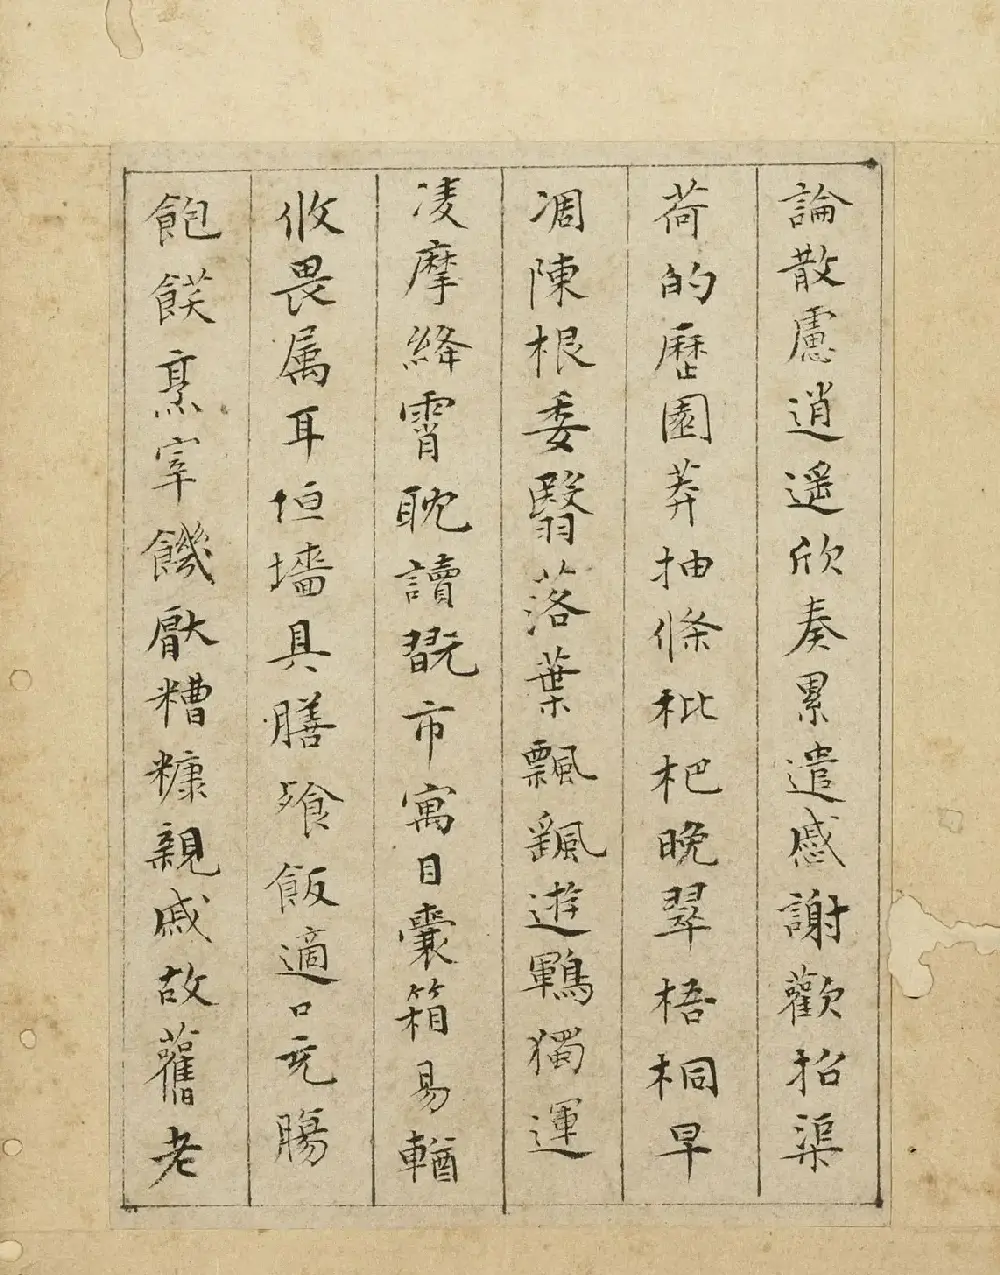 論散慮逍遥欣奏累遣慼謝歡招渠
荷的歷園莽抽條枇杷晚翠梧桐早
凋陳根委翳落葉飄颻遊鵾獨運
凌摩絳霄耽讀翫市寓目囊箱易輶
攸畏属耳垣墻具膳飡飯適口充腸
飽饫烹宰饑厭糟糠親戚故舊老